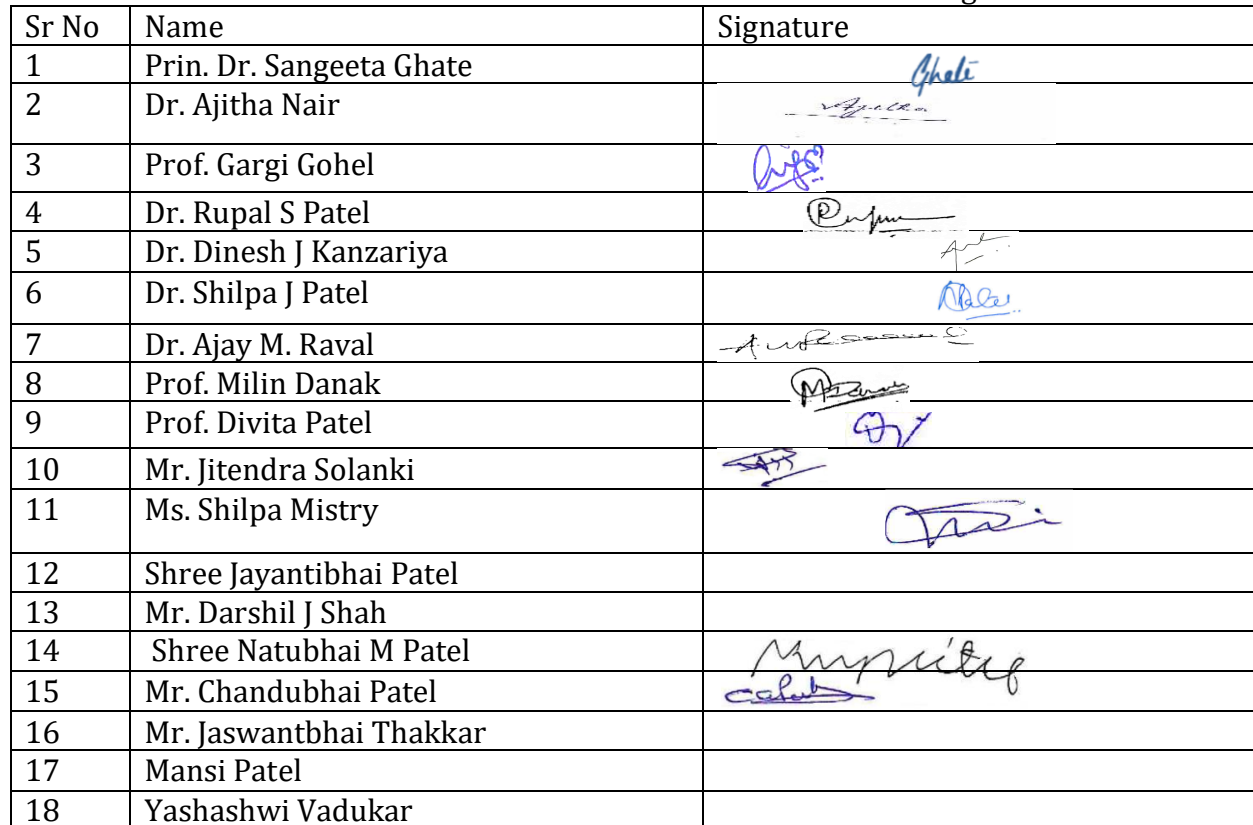 Sr No Name Signature
1 Prin. Dr. Sangeeta Ghate Ghate
2 Dr. Ajitha Nair Ajitha
3 Prof. Gargi Gohel
4 Dr. Rupal S Patel
5 Dr. Dinesh J Kanzariya
6 Dr. Shilpa J Patel
7 Dr. Ajay M. Raval
8 Prof. Milin Danak
9 Prof. Divita Patel
10 Mr. Jitendra Solanki
11 Ms. Shilpa Mistry
12 Shree Jayantibhai Patel
13 Mr. Darshil J Shah
14 Shree Natubhai M Patel
15 Mr. Chandubhai Patel
16 Mr. Jaswantbhai Thakkar
17 Mansi Patel
18 Yashashwi Vadukar